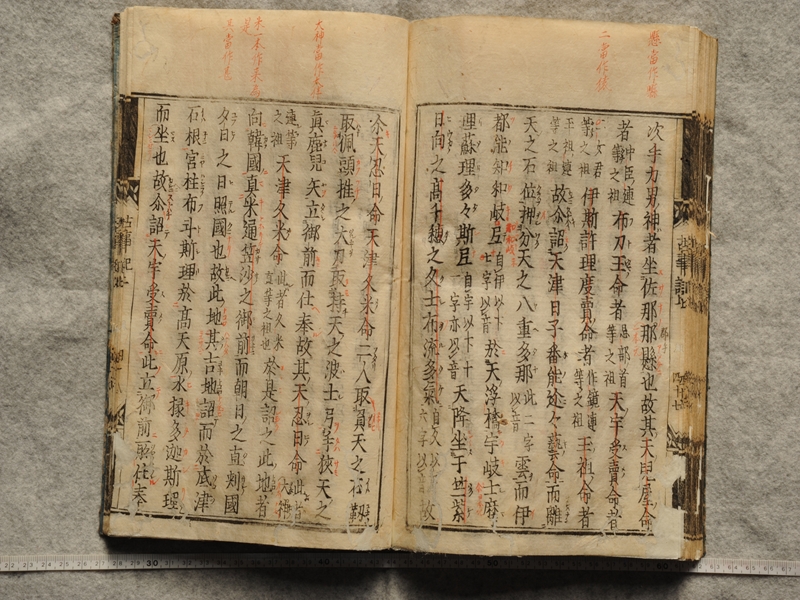 懸当作縣
二当作徐
次手力男神者坐佐那那縣也故其天児屋命
者中臣連等之祖布刀玉命者忌部首等之祖天宇受賣命者
女君等之祖伊斯許理度賣命者作鏡連等之祖玉祖命者
玉祖連等之祖故尒詔天津日子番能迩々藝命而離
天之石位押分天之八重多那此二字以音雲而伊
都能知和岐弖自伊以下七字以音於天浮橋宇岐士摩
理蘇理多々斯弖自宇以下十一字亦以音天降坐于竺紫
日向之高千穂之久士布流多氣自久以下六字以音故
尒天忍日命天津久米命二人取負天之石靫
取佩頭椎之大刀取持天之波士弓手挾天之
真鹿兒矢立御前而仕奉故其天忍日命此者大伴
連等之祖天津久米命此者久米直等之祖也於是詔之此地者
向韓國真来通笠沙之御前而朝日之直刺國
夕日之日照國也故此地甚吉地詔而於底津
石根宮柱布斗斯理於高天原氷椽多迦斯理
而坐也故尒詔天宇受賣命此立御前所仕奉
古事記上